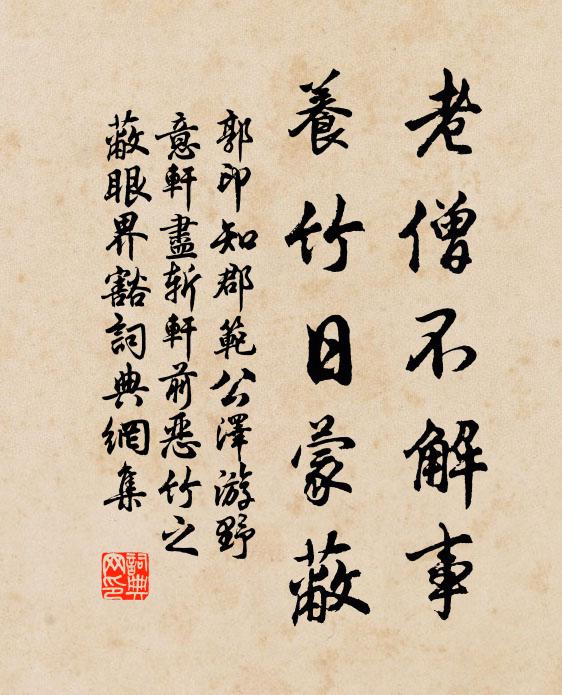 老僧不解事
養竹日蒙蔽
郭印知郡範公澤游野
意軒盡斬軒前惡竹之
蔽眼界豁詞典網集
詞典網印